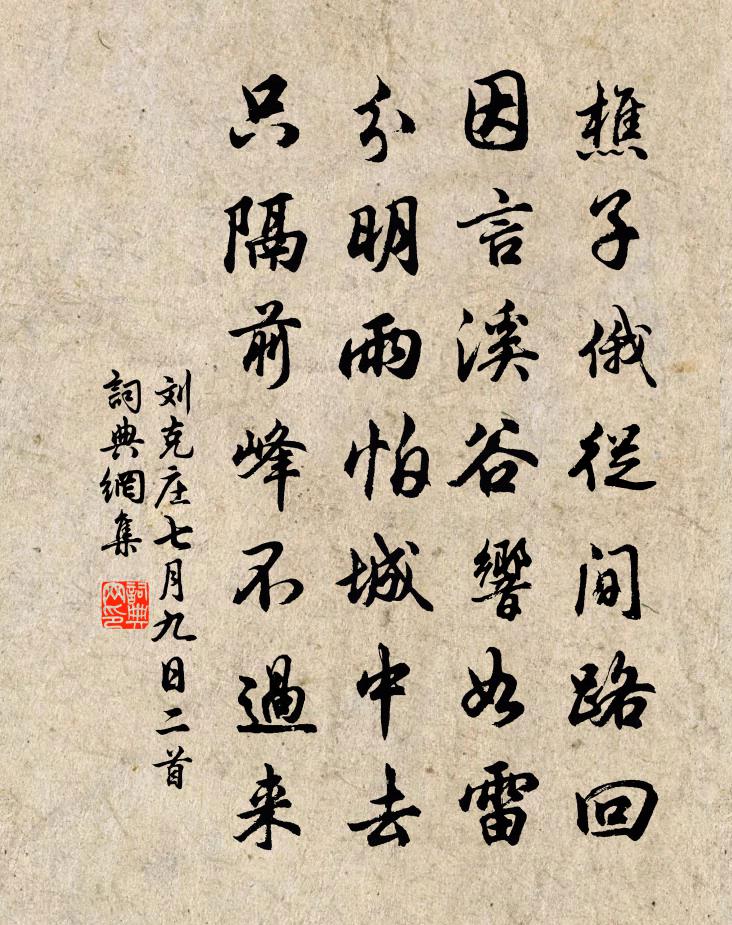 樵子俄從间路回
因言溪谷響如雷
分明雨怕城中去
只隔前峰不過來
刘克庄七月九日二首
詞典網集
詞典網印